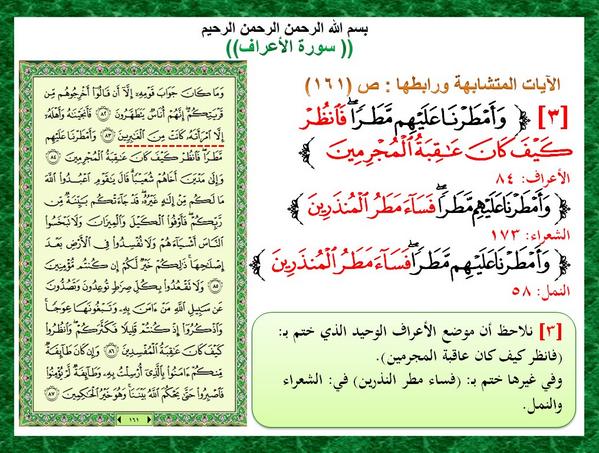 بسم الله الرحمن الرحمن الرحيم
(( سورة الأعراف))
الآيات المتشابهة ورابطها : ص (١٦١)
[٣] ﴿ وَأَمْطَرْنَا عَلَيْهِم مَّطَرًا ۖ فَانظُرْ
كَيْفَ كَانَ عَاقِبَةُ الْمُجْرِمِينَ ﴾
الأعراف: ٨٤
﴿ وَأَمْطَرْنَا عَلَيْهِم مَّطَرًا ۖ فَسَاءَ مَطَرُ الْمُنذَرِينَ ﴾
الشعراء: ١٧٣
﴿ وَأَمْطَرْنَا عَلَيْهِم مَّطَرًا ۖ فَسَاءَ مَطَرُ الْمُنذَرِينَ ﴾
النمل: ٥٨
[٣] نلاحظ أن موضع الأعراف الوحيد الذي ختم بـ:
(فانظر كيف كان عاقبة المجرمين).
وفي غيرها ختم بـ: (فساء مطر النذرين) في: الشعراء
والنمل.
وَمَا كَانَ جَوَابَ قَوْمِهِ إِلَّا أَن قَالُوا أَخْرِجُوهُم مِّن
قَرْيَتِكُمْ ۖ إِنَّهُمْ أُنَاسٌ يَتَطَهَّرُونَ ٨٢ فَأَنجَيْنَاهُ وَأَهْلَهُ
إِلَّا امْرَأَتَهُ كَانَتْ مِنَ الْغَابِرِينَ ٨٣ وَأَمْطَرْنَا عَلَيْهِم
مَّطَرًا ۖ فَانظُرْ كَيْفَ كَانَ عَاقِبَةُ الْمُجْرِمِينَ ٨٤
وَإِلَىٰ مَدْيَنَ أَخَاهُمْ شُعَيْبًا ۗ قَالَ يَا قَوْمِ اعْبُدُوا اللَّهَ
مَا لَكُم مِّنْ إِلَٰهٍ غَيْرُهُ ۖ قَدْ جَاءَتْكُم بَيِّنَةٌ مِّن
رَّبِّكُمْ ۖ فَأَوْفُوا الْكَيْلَ وَالْمِيزَانَ وَلَا تَبْخَسُوا
النَّاسَ أَشْيَاءَهُمْ وَلَا تُفْسِدُوا فِي الْأَرْضِ بَعْدَ
إِصْلَاحِهَا ۚ ذَٰلِكُمْ خَيْرٌ لَّكُمْ إِن كُنتُم مُّؤْمِنِينَ
٨٥ وَلَا تَقْعُدُوا بِكُلِّ صِرَاطٍ تُوعِدُونَ وَتَصُدُّونَ
عَن سَبِيلِ اللَّهِ مَنْ آمَنَ بِهِ وَتَبْغُونَهَا عِوَجًا ۚ
وَاذْكُرُوا إِذْ كُنتُمْ قَلِيلًا فَكَثَّرَكُمْ ۖ وَانظُرُوا
كَيْفَ كَانَ عَاقِبَةُ الْمُفْسِدِينَ ٨٦ وَإِن كَانَ طَائِفَةٌ
مِّنكُمْ آمَنُوا بِالَّذِي أُرْسِلْتُ بِهِ وَطَائِفَةٌ لَّمْ يُؤْمِنُوا
فَاصْبِرُوا حَتَّىٰ يَحْكُمَ اللَّهُ بَيْنَنَا ۚ وَهُوَ خَيْرُ الْحَاكِمِينَ ٨٧
١٦١